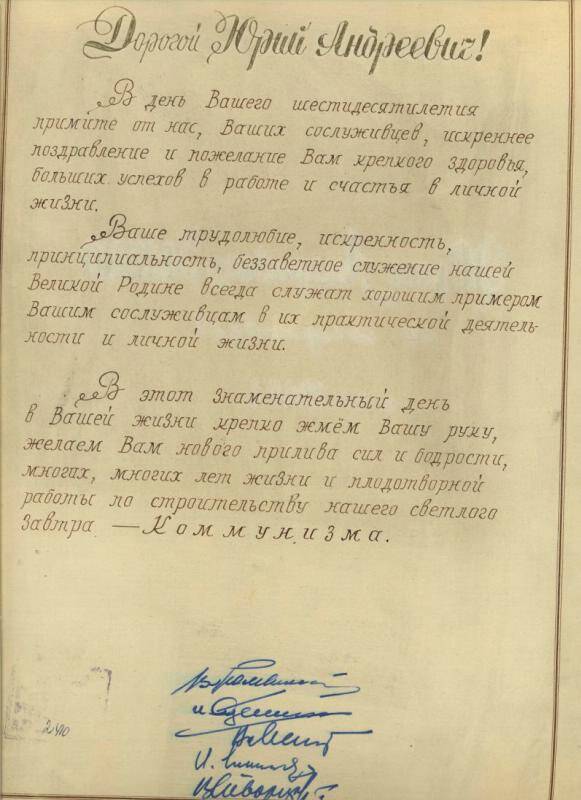 Дорогой Юрий Андреевич!
В день Вашего шестидесятилетия
примите от нас, Ваших сослуживцев, искреннее
поздравление и пожелание Вам крепкого здоровья,
больших успехов в работе и счастья в личной
жизни.
Ваше трудолюбие, искренность,
принципиальность, беззаветное служение нашей
Великой Родине всегда служат хорошим примером
Вашим сослуживцам в их практической деятель-
ности и личной жизни.
В этот знаменательный день
в Вашей жизни крепко жмём Вашу руку,
желаем Вам нового прилива сил и бодрости,
многих, многих лет жизни и плодотворной
работы по строительству нашего светлого
завтра — Коммунизма.